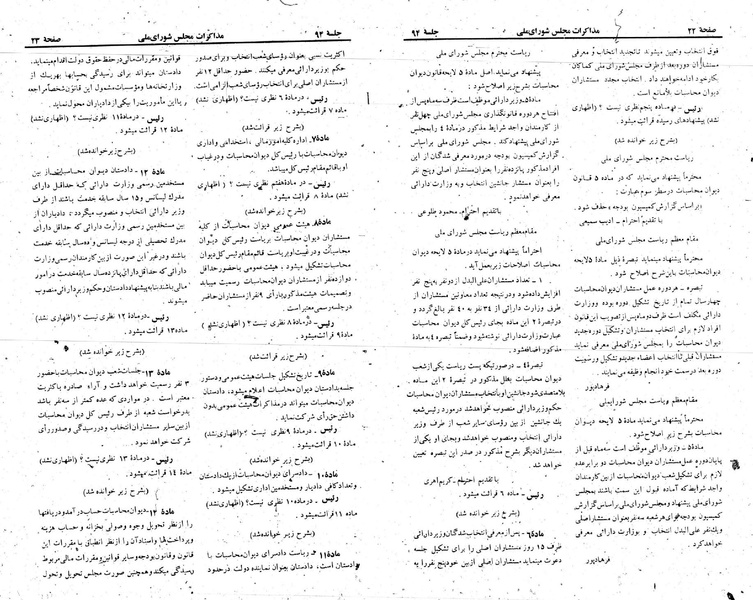 صفحهٔ ۲۲ مذاکرات مجلس شورای ملی جلسهٔ ۹۲
فوق انتخاب و تعیین میشوند تاتجدید انتخاب و معرفی
مستشاران دوره بعد از طرف مجلس شورای ملی کماکان
بکار خود ادامه خواهند داد. انتخاب مجدد مستشاران
دیوان محاسبات بلامانع است.
رئیس - در ماده پنجم نظری نیست؟ (اظهاری
نشد) پیشنهادهای رسیده قرائت میشود.
(بشرح زیر خوانده شد)
ریاست محترم مجلس شورای ملی
محترماً پیشنهاد می نماید که در ماده ۵ قانون
دیوان محاسبات در سطر سوم عبارت:
براساس گزارش کمیسیون بودجه - حذف شود.
با تقدیم احترام - ادیب سمیعی
مقام معظم ریاست مجلس شورای ملی
محترماً پیشنهاد مینماید تبصره ذیل مادهٔ ۵ لایحه
دیوان محاسبات باین شرح اصلاح شود.
تبصره - دوره عمل مستشاران دیوان محاسبات
چهارسال تمام از تاریخ تشکیل دوره بوده ووزارت
دارائی مکلف است ظرف سه ماه پس از تصویب این قانون
افراد لازم برای انتخاب مستشاران وتشکیل دوره جدید
دیوان محاسبات را بمجلس شورای ملی معرفی نماید
مستشاران فعلی تا انتخاب اعضاء جدید و تشکیل و رسمیت
دوره جدید در سمت خود انجام وظیفه می نمایند.
فرهادپور
مقام معظم ریاست مجلس شورای ملی
محترماً پیشنهاد می نماید ماده ۵ لایحه دیوان
محاسبات بشرح زیر اصلاح شود.
ماده۵ - وزیر دارائی موظف است سه ماه قبل از
پایان دوره عمل مستشاران دیوان محاسبات دو برابر عده
لازم برای تشکیل شعب دیوان محاسبات از بین کارمندان
واجد شرایط که آماده قبول این سمت باشند بمجلس
شورای ملی پیشنهاد و مجلس شورای ملی براساس گزارش
کمیسیون بودجه برای هر شعبه سه نفر بعنوان مستشار اصلی
ویک نفر علی البدل انتخاب و بوزارت دارائی معرفی
خواهد کرد.
فرهادپور
ریاست محترم مجلس شورای ملی
پیشنهاد می نماید. اصل مادهٔ ۵ لایحه قانون دیوان
محاسبات بشرح زیر اصلاح شود:
ماده۵ - وزیر دارائی موظف است ظرف سه ماه پس از
افتتاح هر دوره قانونگذاری مجلس شورای ملی چهل نفر
از کارمندان واجد شرایط مذکور در مادهٔ ۴ را بمجلس
شورای ملی پیشنهاد کند. مجلس شورای ملی براساس
گزارش کمیسیون بودجه در مورد معرفی شدگان از این
افراد مذکور پانزده نفر را بعنوان مستشار اصلی و پنج نفر
را بعنوان مستشار جانشین انتخاب و به وزارت دارائی
معرفی خواهد نمود.
باتقدیم احترام. محمود طلوعی
مقام معظم ریاست مجلس شورای ملی
احتراماً پیشنهاد می نماید در مادهٔ ۵ لایحه دیوان
محاسبات اصلاحات زیر بعمل آید.
۱ - تعداد مستشاران علی البدل از دو نفر به پنج نفر
افزایش داده شود و در نتیجه تعداد معاونین مستشاران از
طرف وزارت دارائی از ۳۴ نفر به ۴۰ نفر بالغ گردد و
در تبصره ۲ این ماده بجای رئیس کل دیوان محاسبات
عبارت وزارت دارائی نوشته شود وضمناً تبصره ۴ به مادهٔ
مذکور اضافه شود.
تبصرهٔ ۴ - در صورتیکه پست ریاست یکی از شعب
دیوان محاسبات بعلل مذکور در تبصرهٔ ۲ این ماده
بلا متصدی شود جانشین او با انتخاب مستشاران دیوان محاسبات و
حکم وزیر دارائی منصوب خواهد شد در مورد رئیس شعبه
یک جانشین از بین رؤسای سایر شعب از طرف وزیر
دارائی انتخاب و منصوب خواهد شد و بجای او یکی از
مستشاران دیگر بشرح مذکور در صدر این تبصره تعیین
خواهد شد
باتقدیم احترام - کریم اهری
رئیس - ماده ۶ قرائت میشود.
(بشرح زیر خوانده شد)
ماده۶ - پس از معرفی انتخاب شدگان وزیر دارائی
ظرف ۱۵ روز مستشاران اصلی را برای تشکیل جلسه
دعوت مینماید مستشاران اصلی از بین خود پنج نفر را به
جلسهٔ ۹۲ مذاکرات مجلس شورای ملی صفحهٔ ۲۳
اکثریت نسبی بعنوان رؤسای شعب انتخاب و برای صدور
حکم بوزیر دارائی معرفی میکنند. حضور حداقل ۱۲ نفر
از مستشاران اصلی برای انتخاب رؤسای شعب الزامی است.
رئیس - در ماده ۶ نظری نیست؟ (اظهاری نشد)
ماده ۷ قرائت میشود.
(بشرح زیر قرائت شد)
ماده۷ - اداره کلیه امور مالی، استخدامی و اداری
دیوان محاسبات با رئیس کل دیوان محاسبات و در غیاب
او با قائم مقام رئیس کل میباشد.
رئیس - در ماده هفتم نظری نیست؟ (اظهاری
نشد) ماده ۸ قرائت میشود.
(بشرح زیر خوانده شد)
ماده۸ - هیئت عمومی دیوان محاسبات از کلیه
مستشاران دیوان محاسبات بریاست رئیس کل دیوان
محاسبات و در غیبت او بریاست قائم مقام رئیس کل دیوان
محاسبات تشکیل میشود، هیئت عمومی با حضور حداقل
دوازده نفر از مستشاران دیوان محاسبات رسمیت میابد
و تصمیمات هیئت مذکور با رأی ۹ نفر از مستشاران حاضر
در جلسه رسمی معتبر است.
رئیس - در ماده ۸ نظری نیست؟ (اظهاری نشد)
مادهٔ ۹ قرائت میشود.
(بشرح زیر قرائت شد)
ماده۹ - تاریخ تشکیل جلسات هیئت عمومی و دستور
جلسه بدادستان دیوان محاسبات اعلام میشود، دادستان
دیوان محاسبات میتواند در مذاکرات هیئت عمومی بدون
داشتن حق رأی شرکت نماید.
رئیس - در مادهٔ ۹ نظری نیست؟ (اظهاری نشد)
ماده ۱۰ قرائت میشود.
(بشرح زیر خوانده شد)
ماده ۱۰ - دادسرای دیوان محاسبات از یک دادستان
و تعداد کافی دادیار و مستخدمین اداری تشکیل میشود.
رئیس - در ماده ۱۰ نظری نیست؟ (اظهاری نشد)
ماده ۱۱ قرائت میشود.
(بشرح زیر خوانده شد)
ماده۱۱ - ریاست دادسرای دیوان محاسبات با
دادستان است، دادستان بعنوان نماینده دولت در حدود
قوانین و مقررات مالی در حفظ حقوق دولت اقدام مینماید.
دادستان میتواند برای رسیدگی بحسابها بهر یک از
وزارتخانه ها و مؤسسات مشمول این قانون شخصاً مراجعه
و یا این مأموریت را بیکی از دادیاران محول نماید.
رئیس - در ماده ۱۱ نظری نیست؟ (اظهاری نشد)
مادهٔ ۱۲ قرائت میشود.
(بشرح زیر خوانده شد)
ماده ۱۲ - دادستان دیوان محاسبات از بین
مستخدمین رسمی وزارت دارائی که حداقل دارای
مدرک لیسانس و ۱۵ سال سابقه خدمت باشند از طرف
وزیر دارائی انتخاب و منصوب میگردد؛ دادیاران از
بین مستخدمین رسمی وزارت دارائی که حداقل دارای
مدرک تحصیلی از درجه لیسانس وده سال سابقه خدمت
باشند و در غیر این صورت از بین کارمندان رسمی وزارت
دارائی که حداقل دارای پانزده سال سابقه خدمت در امور
مالی باشند بنا به پیشنهاد دادستان و حکم وزیر دارائی منصوب
میشوند
رئیس - در ماده ۱۲ نظری نیست؟ (اظهاری نشد)
ماده۱۳ قرائت میشود.
(بشرح زیر خوانده شد)
ماده ۱۳ - جلسات شعب دیوان محاسبات با حضور
۳ نفر رسمیت خواهد داشت و آراء صادره باکثریت
معتبر است. در مواردی که عده کمتر از سه نفر باشد
بدرخواست شعبه از طرف رئیس کل دیوان محاسبات
از بین سایر مستشاران انتخاب و در رسیدگی و صدور رأی
شرکت خواهد نمود.
رئیس - در ماده ۱۳ نظری نیست؟ (اظهاری نشد)
ماده ۱۴ قرائت میشود.
(بشرح زیر خوانده شد)
ماده ۱۴ - دیوان محاسبات حساب درآمد و دریافتها
را از نظر تحویل وجوه وصولی بخزانه و حساب هزینه
و پرداختها و اسناد آن را از نظر انطباق با مقررات این
قانون و قانون بودجه و سایر قوانین و مقررات مالی مربوط
رسیدگی میکند و همچنین صورت مجلس تحویل و تحول